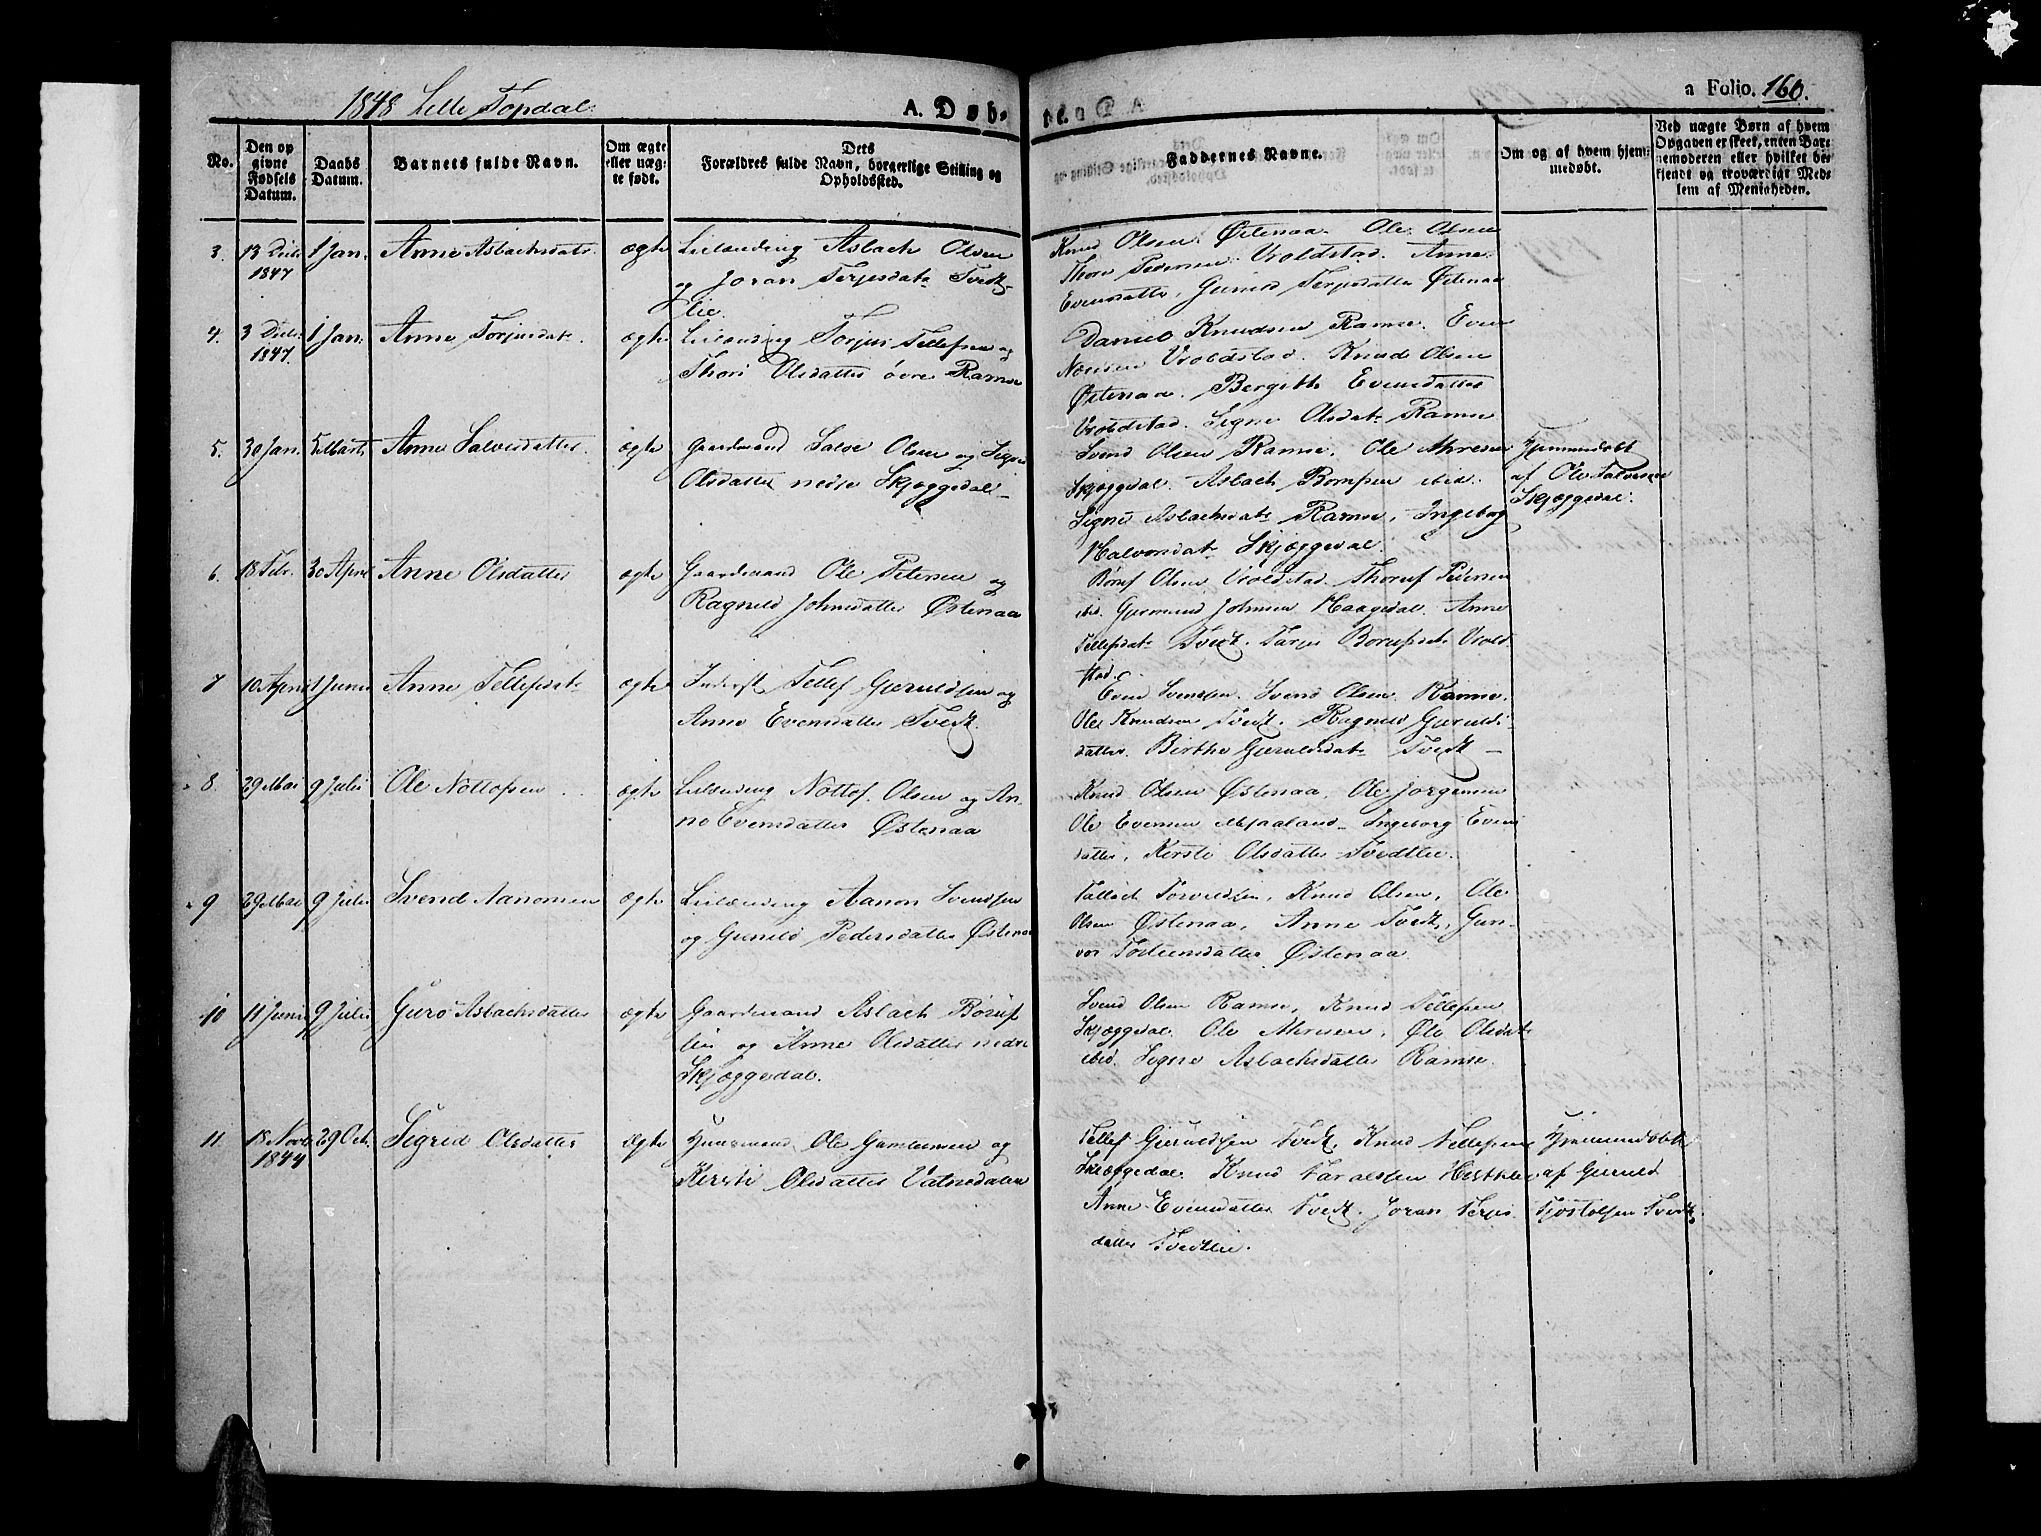 1848 Lille Topdal.
A. Døb-
a Folio. 160.
No.
Den opgivne Fødsels Datum.
Daabs Datum.
Barnets fulde Navn.
Om ægte eller uægte født.
Forældres fulde Navn, borgerlige Stilling og Dets Opholdssted.
Faddernes Navne.
Om og af hvem hjemmedøbt.
Ved uægte Børn af hvem Opgaven er skeet, enten Barnemoderen eller hvilket bekjendt og troværdigt Medlem af Menigheden.
3. 13 Decbr 1847 1 Jan. Anne Aslachsdatr. ægte Leilænding Aslach Olsen
og Joran Terjesdatr Tvedt-
lie.
Knud Olsen Østenaa. Ole Olsen
Thore Pedersen Vroldstad. Anne
Evensdatter, Gunild Terjesdatter Østenaa
4. 3 Decbr 1847. 1 Jan. Anne Torjusdatr. ægte Leilænding Torjus Tellefsen og
Thori Olsdatter øvre Ramse
Daniel Knudsen Ramse. Even
Nænsen Vroldstad. Knud Olsen
Østenaa. Bergith Evensdatter
Vroldstad. Signe Olsdatr Ramse
5. 30 Jan. 5 Marts Anne Salvesdatter. ægte Gaardmand Salve Olsen og Signe
Olsdatter nedre Skjæggedal-
Svend Olsen Ramse, Ole Ahresen
Skjæggedal. Aslach ibid.
Signe Aslachsdatr Ramse, Ingeborg
Halvorsdatr Skjæggedal.
Hjemmedøbt
af Ole Salvesen
Skjæggedal.
6. 18 Febr. 30 April Anne Olsdatter ægte Gaardmand Ole Petersen og
Ragnild Johnsdatter Østenaa
Børuf Olsen Vroldstad. Thoruf Pedersen
ibid. Gjermund Johnsen Haagedal. Anne
Tellefsdatr Tvedt. Tarjer Borufsdatr Vrold-
stad.
7 10 April 1 Junii Anne Tellefsdatr ægte Inderst Tellef Gjeruldsen og
Anne Evensdatter Tvedt.
Even Svensen. Svend Olsen Ramse.
Ole Knudsen Tvedt. Ragnild Gjerulds-
datter. Birthe Gjeruldsdatr Tvedt -
8. 29 Mai 9 Julii Ole Nottofsen ægte Leilænding Nottof Olsen og An-
ne Evensdatter Østenaa
Knud Olsen Østenaa, Ole Jørgensen
Ole Evensen Mjaaland- Ingeborg Evens-
datter, Kersti Olsdatter Tvedtlie.
9 29 Mai 9 Julii Svend Aanonsen ægte Leilænding Aanon Svendsen
og Gunild Pedersdatter Østenaa
Tallach Torvildsen, Knud Olsen, Ole
Olsen Østenaa, Anne Tvedt, Gun-
vor Torkensdatter Østenaa.
10 11 Junii 9 Julii Guro Aslachsdatter ægte Gaardmand Aslach Børuf-
sen og Anne Olsdatter nedre
Skjæggedal.
Svend Olsen Ramse, Knud Tellefsen
Skjæggedal. Ole Ahresen, Ole Olsdatr
ibid. Signe Aslachsdatter Ramse.
11. 18 Novbr 1844 29 Oct. Sigrid Olsdatter ægte Huusmand, Ole Gundersen og
Kersti Olsdatter Vatnedalen
Tellef Gjeruldsen Tvedt. Knud Tellefsen
Skjæggedal. Knud Taraldsen Hestlien
Anne Evensdatter Tvedt. Joran Terjes-
datter Tvedtlie.
Hjemmedøbt
af Gjeruld
Tjostolfsen Tvedt.